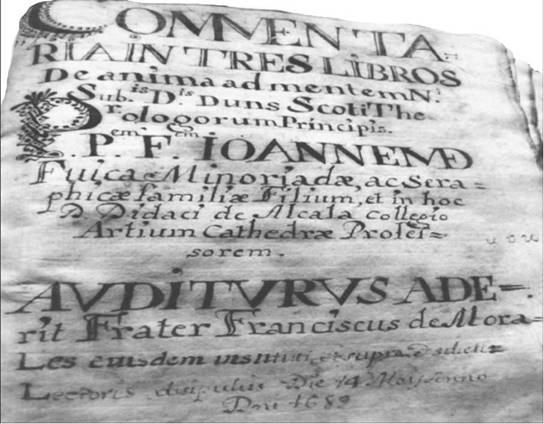 COMMENTA
RIA IN TRES LIBROS
De anima ad mentem N.
Sub.is D.is Duns Scoti The
ologorum Principis.
Per em. P. em. F. IOANNEM
Fuica Minoriadæ, ac Sera=
phicæ familiæ Filium, et in hoc
D. Didaci de Alcala collegio
Artium Cathedræ Profes=
sorem.
AVDITVRVS ADE=
rit Frater Franciscus de Mora=
Les eiusdem instituti, et supra
Lectoris disipulus Die 14 Maij Anno
Dni 1689